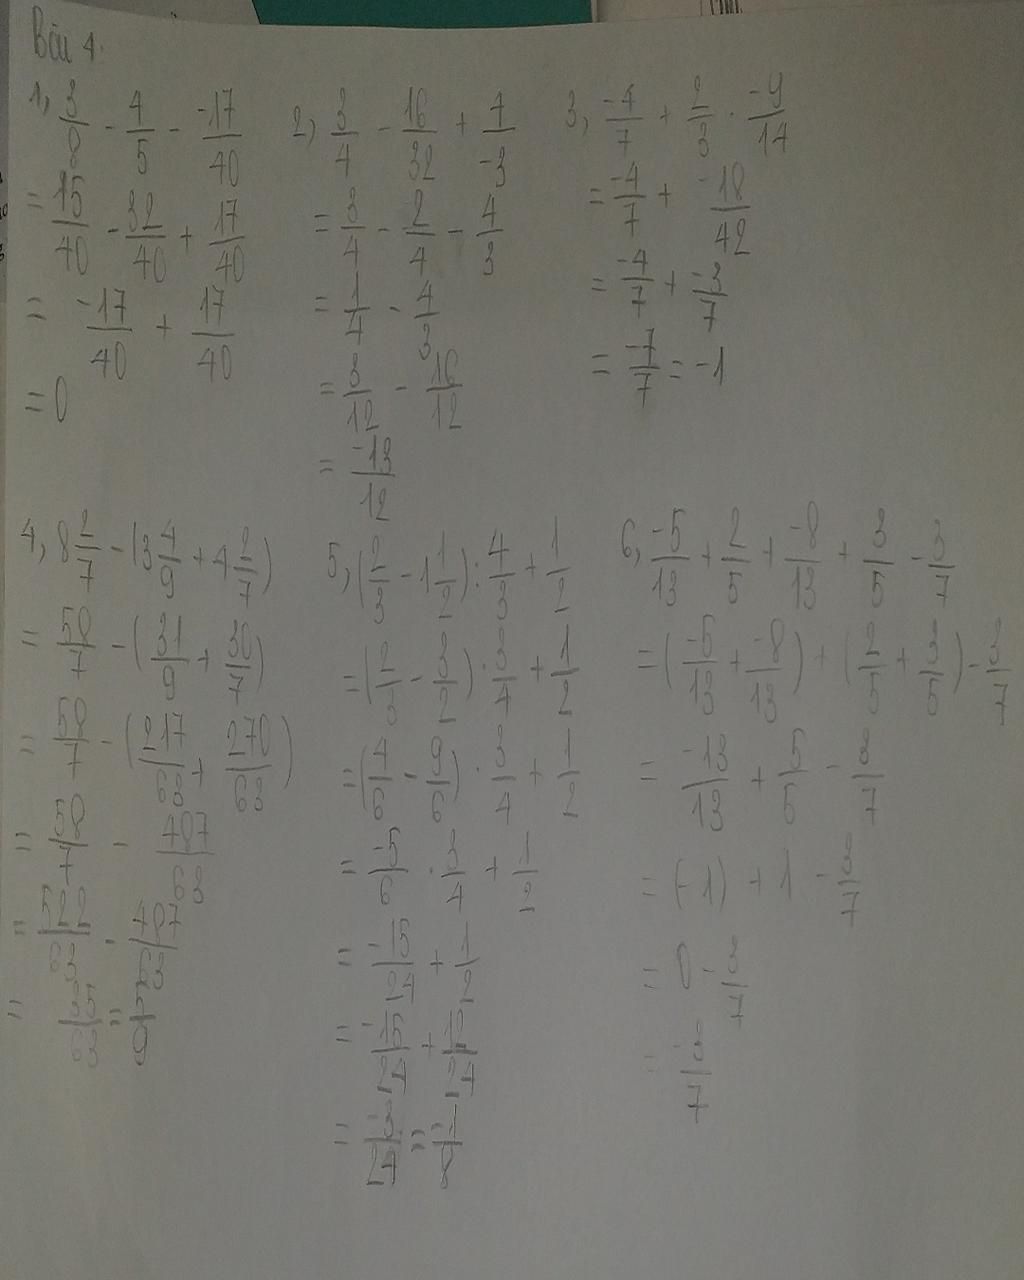 Bài 4.
1, 3/8 - 4/5 - -17/40
= 15/40 - 32/40 + 17/40
= -17/40 + 17/40
= 0
2, 3/4 - 16/32 + 4/-3
= 3/4 - 2/4 - 4/3
= 1/4 - 4/3
= 3/12 - 16/12
= -13/12
3, -4/7 + 2/3 . -9/14
= -4/7 + -18/42
= -4/7 + -3/7
= -7/7 = -1
4, 8 2/7 - (3 4/9 + 4 2/7)
= 58/7 - (31/9 + 30/7)
= 58/7 - (217/63 + 270/63)
= 58/7 - 487/63
= 522/63 - 487/63
= 35/63 = 5/9
5, (2/3 - 1 1/2) : 4/3 + 1/2
= (2/3 - 3/2) . 3/4 + 1/2
= (4/6 - 9/6) . 3/4 + 1/2
= -5/6 . 3/4 + 1/2
= -15/24 + 1/2
= -15/24 + 12/24
= -3/24 = -1/8
6, -5/13 + 2/5 + -8/13 + 3/5 - 3/7
= (-5/13 + -8/13) + (2/5 + 3/5) - 3/7
= -13/13 + 5/5 - 3/7
= (-1) + 1 - 3/7
= 0 - 3/7
= -3/7